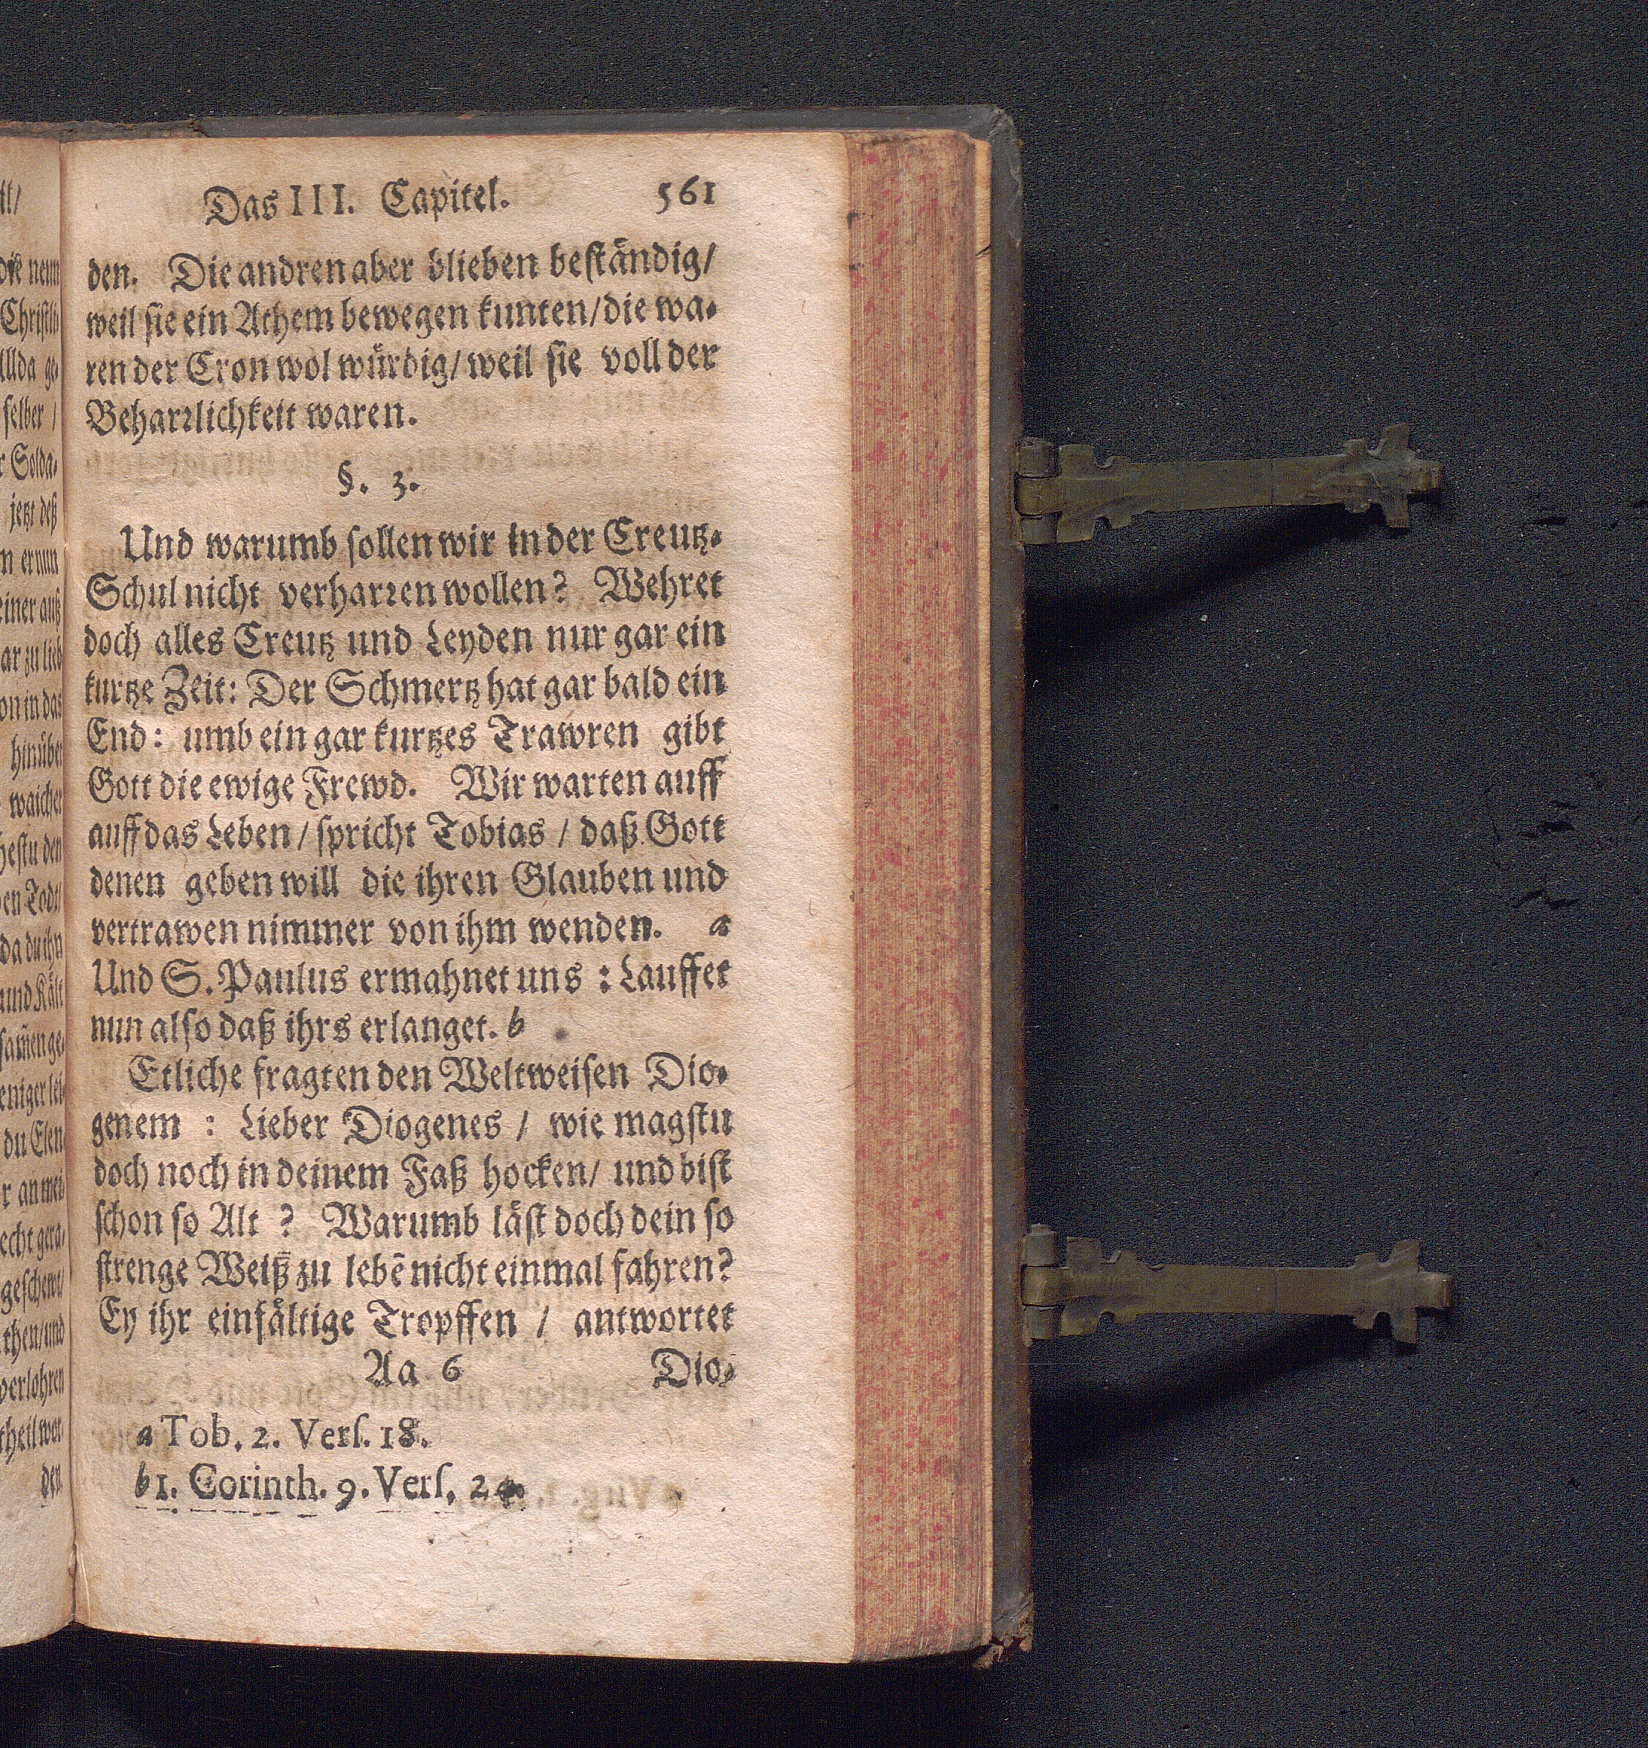 Das III. Capitel. 561
den. Die andren aber blieben beståndig/
weil sie ein Athem bewegen kunten/die wa-
ren der Cron wol wůrdig/ weil sie voll der
Beharꝛlichkeit waren.
§. 3.
Und warumb sollen wir in der Creutz-
Schul nicht verharꝛen wollen? Wehret
doch alles Creutz und Leyden nur gar ein
kurtze Zeit: Der Schmertz hat gar bald ein
End: umb ein gar kurtzes Trawren gibt
Gott die ewige Frewd. Wir warten auff
auff das Leben / spricht Tobias / daß Gott
denen geben will die ihren Glauben und
vertrawen nimmer von ihm wenden. a
Und S. Paulus ermahnet uns : Lauffet
nun also daß ihrs erlanget. b
Etliche fragten den Weltweisen Dio-
genem : Lieber Diogenes / wie magstu
doch noch in deinem Faß hocken/ und bist
schon so Alt ? Warumb låst doch dein so
strenge Weiß zu lebē nicht einmal fahren?
Ey ihr einfåltige Tropffen / antwortet
Aa 6 Dio-
a Tob. 2. Vers. 18.
b 1. Corinth. 9. Vers. 24.